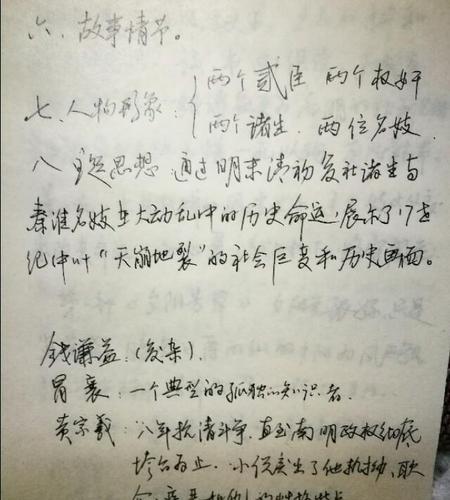 六、故事情节。
七、人物形象：{两个贰臣 两个权奸
两个诸生 两位名妓
八、主题思想 通过明末清初复社诸生与
秦淮名妓在大动乱中的历史命运，展示了17世
纪中叶“天崩地裂”的社会巨变和历史画面。
钱谦益：（复杂）．
冒襄：一个典型的孤独的知识者．
黄宗羲：八年抗清斗争，直至南明政权彻底
垮台为止．小说突出了他执拗、